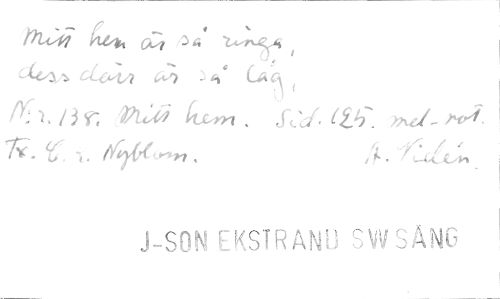 Mitt hem är så ringa,
dess dörr är så låg,
N:r. 138. Mitt hem. Sid. 125. mel-not.
Tx. C. R. Nyblom. A. Vidén.
J-SON EKSTRAND SW SÅNG